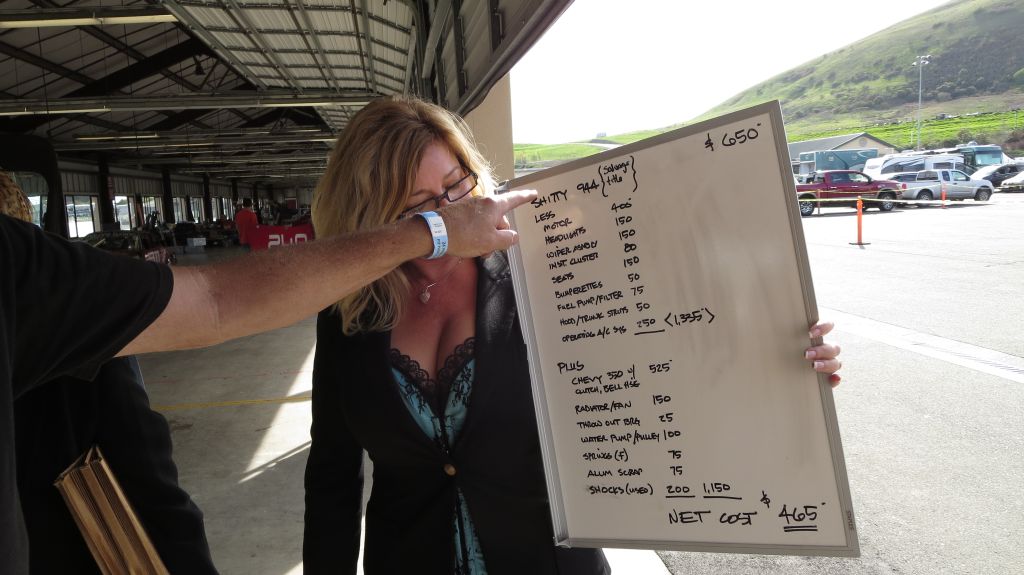 $ 650
SHITTY 944 {Salvage title}
LESS
MOTOR 400
HEADLIGHTS 150
WIPER ASMBLY 150
INST CLUSTER 80
SEATS 150
BUMPERETTES 50
FUEL PUMP/FILTER 75
HOOD/TRUNK STRUTS 50
OPERATING A/C SYS 250 <1,355>
PLUS
CHEVY 350 W/ 525
CLUTCH, BELL HSG
RADIATOR/FAN 150
THROW OUT BRG 25
WATER PUMP/PULLEY 100
SPRINGS (F) 75
ALUM SCRAP 75
SHOCKS (USED) 200 1,150
NET COST $ 465